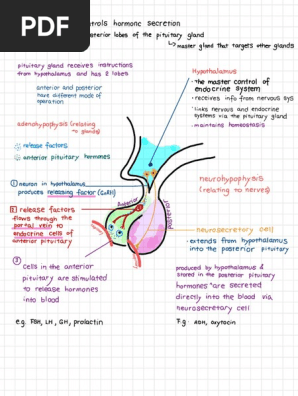 PDF
ntrols hormone secretion
sterior lobes of the pituitary gland
master gland that targets other glands
pituitary gland receives instructions
from hypothalamus and has 2 lobes
anterior and posterior
have different mode of
operation
Hypothalamus
• the master control of
endocrine system
• receives info from nervous sys
• links nervous and endocrine
systems via the pituitary gland
• maintains homeostasis
adenohypophysis (relating
to glands)
release factors
anterior pituitary hormones
① neuron in hypothalamus
produces releasing factor (GnRH)
② release factors
flows through the
portal vein to
endocrine cells of
anterior pituitary
Anterior
Posterior
neurohypophysis
(relating to nerves)
neurosecretory cell
• extends from hypothalamus
into the posterior pituitary
③
cells in the anterior
pituitary are stimulated
to release hormones
into blood
e.g. FSH, LH, GH, prolactin
produced by hypothalamus &
stored in the posterior pituitary
hormones are secreted
directly into the blood via
neurosecretory cell
E.g. ADH, oxytocin